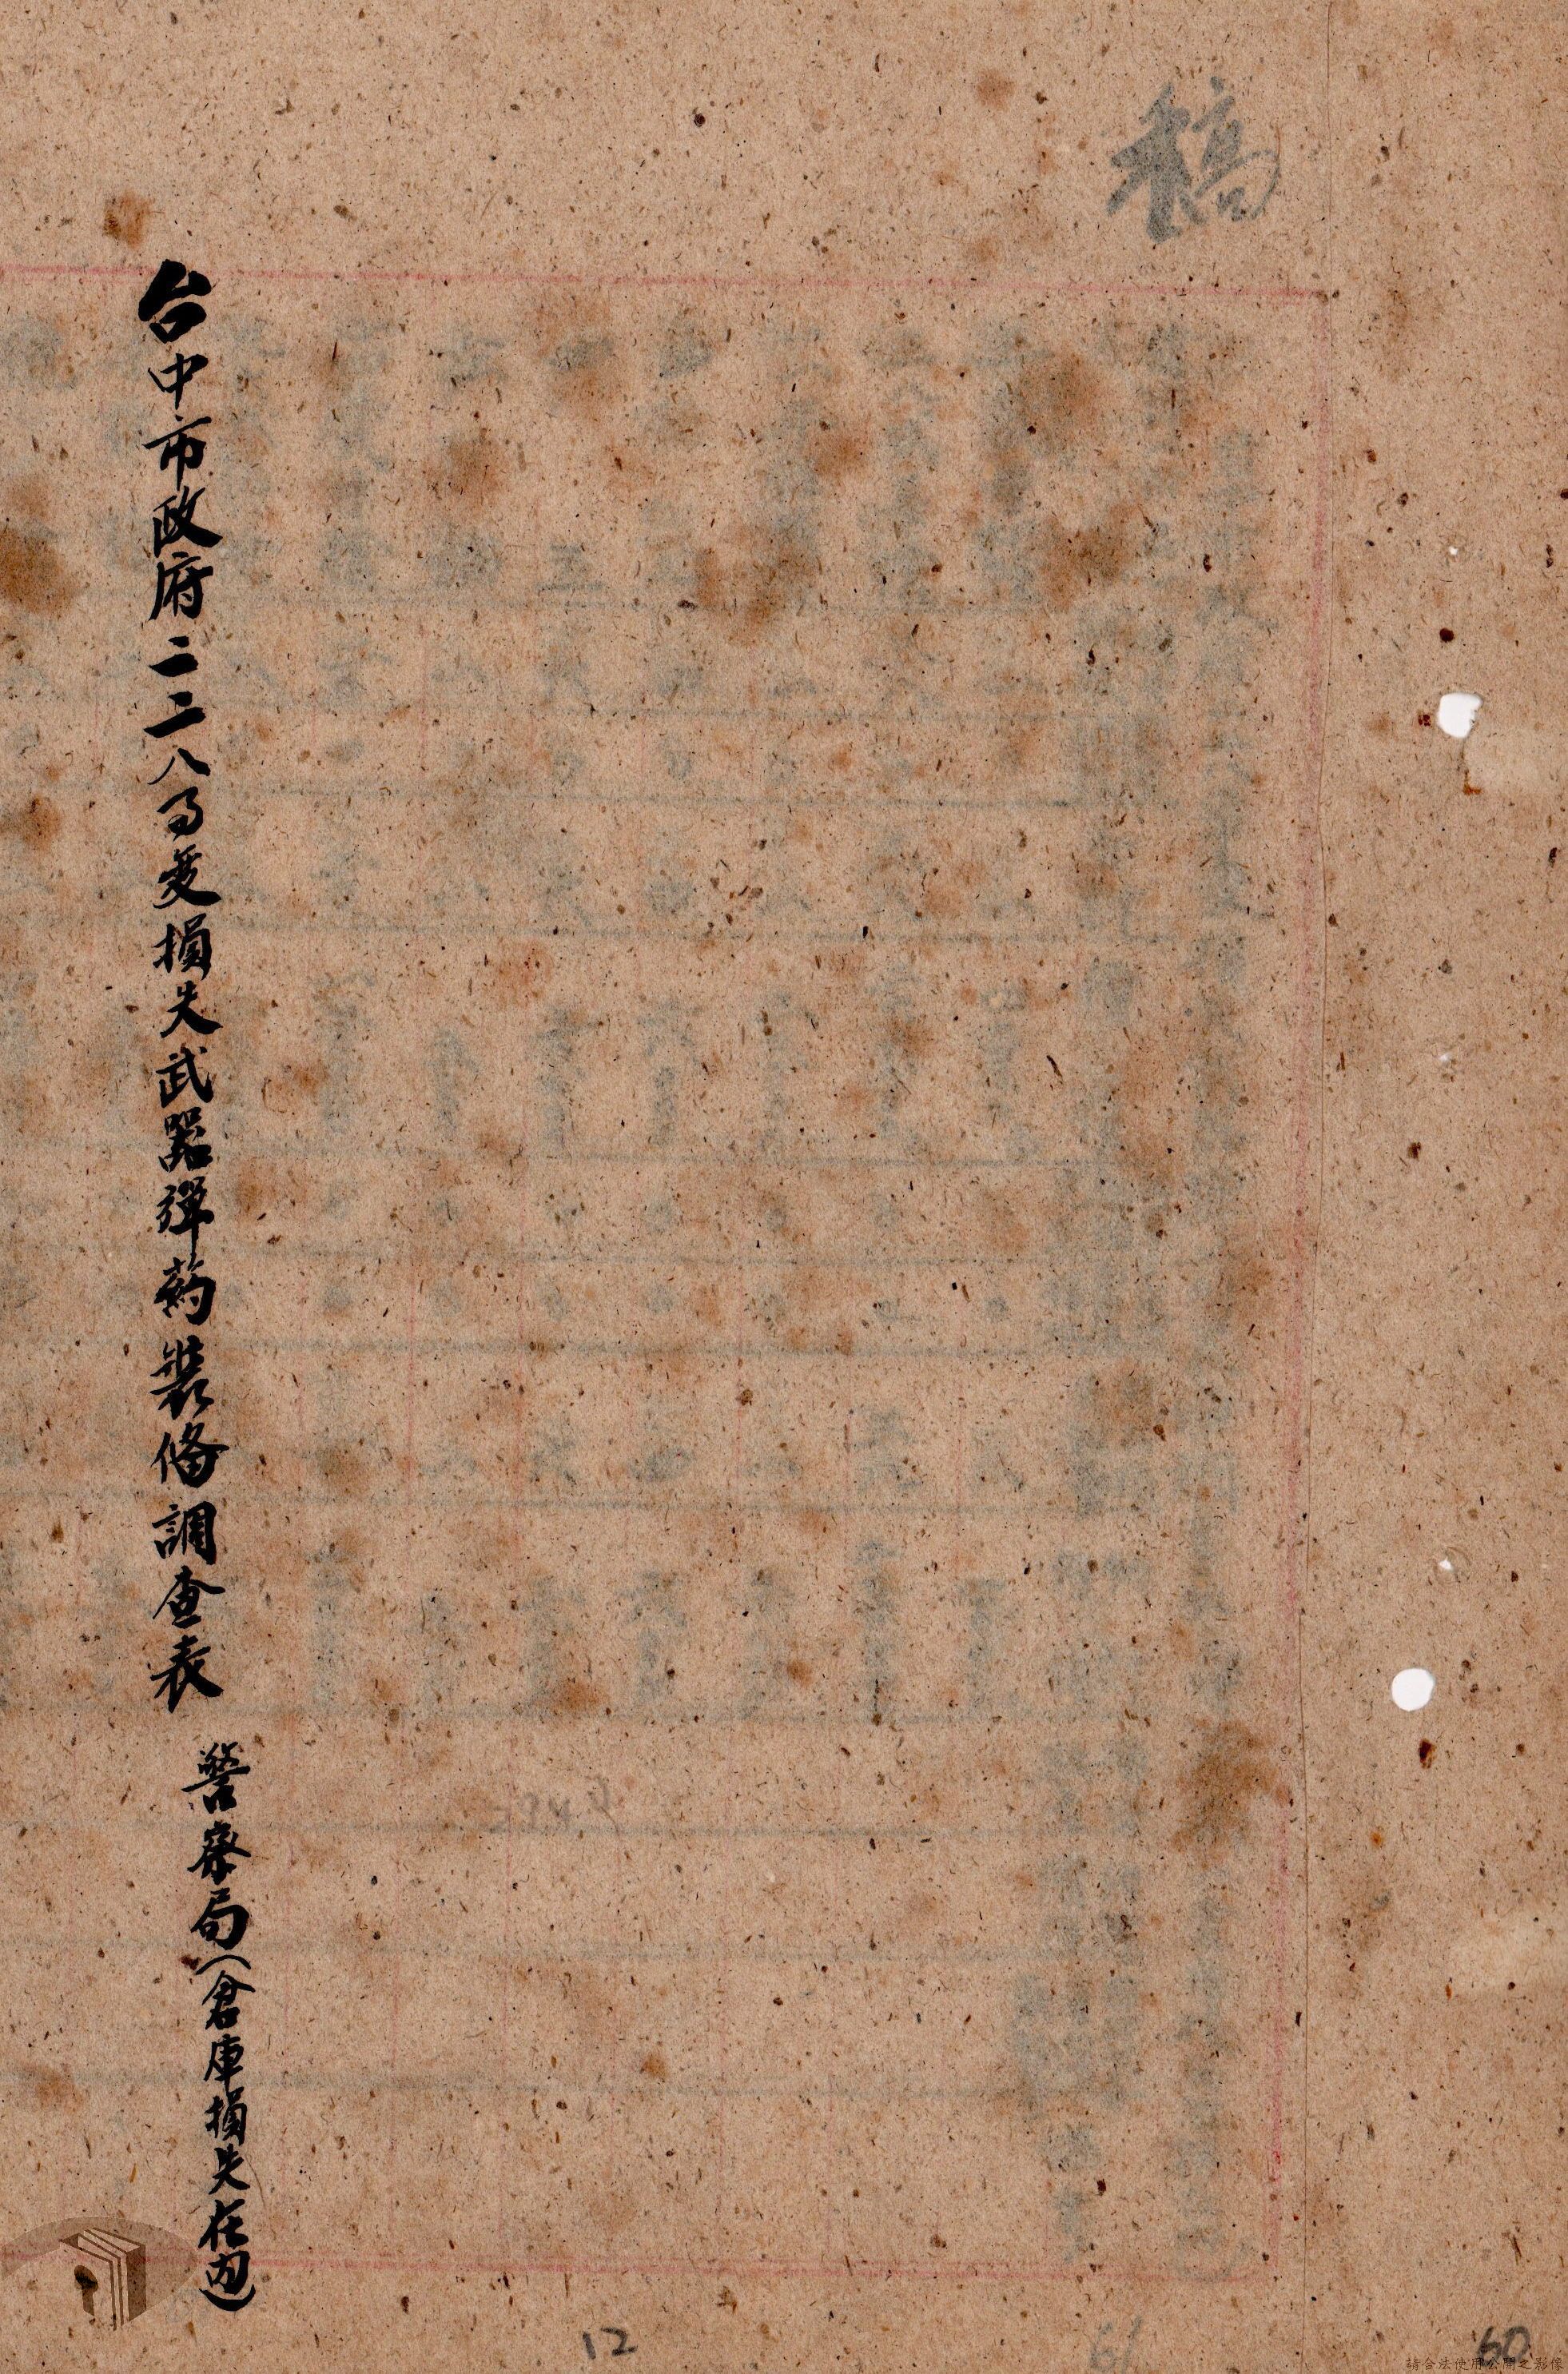 稿
台中市政府二二八事变損失武器弹药裝俻調查表
警察局(倉庫損失在内)
12
61
60
請合法使用公開之影像